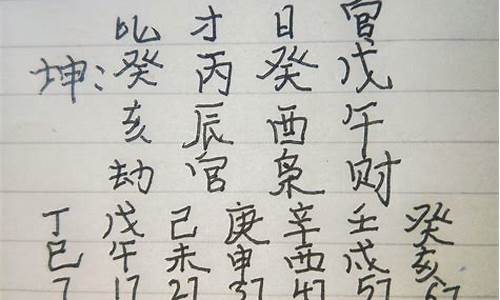 比 才 日 官
坤: 癸 丙 癸 戊
亥 辰 酉 午
劫 官 枭 财
丁 戊 己 庚 辛 壬 癸
巳 午 未 申 酉 戌 亥
7 17 27 37 47 57 67